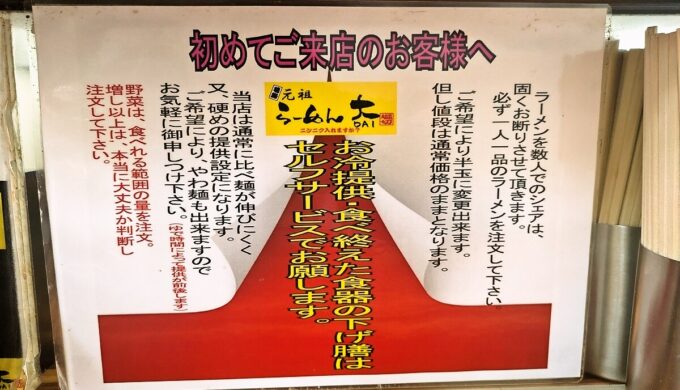 初めてご来店のお客様へ
元祖
らーめん 大
DAI
ニンニク入れますか?
ラーメンを数人でのシェアは、
固くお断りさせて頂きます。
必ず一人一品のラーメンを注文して下さい。
ご希望により半玉に変更出来ます。
但し値段は通常価格のままとなります。
お冷提供・食べ終えた食器の下げ膳は
セルフサービスでお願します。
当店は通常に比べ麺が伸びにくく
又、硬めの提供設定になります。
ご希望により、やわ麺も出来ますので
お気軽に御申しつけ下さい。(ゆで時間によって提供が前後します)
野菜は、食べれる範囲の量を注文。
増し以上は、本当に大丈夫か判断し
注文して下さい。